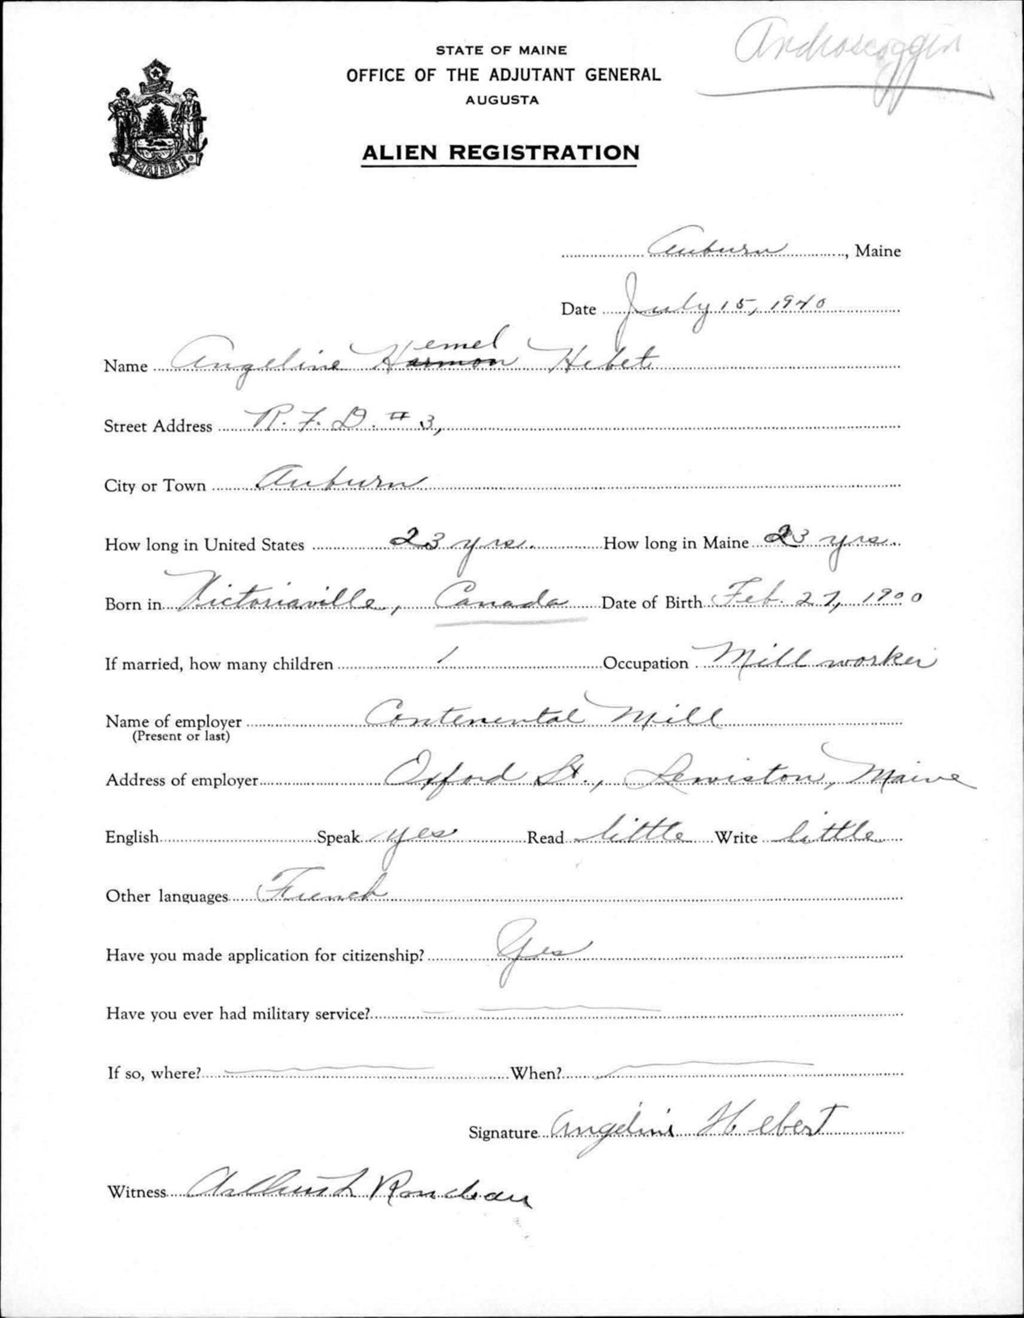 Androscoggin
STATE OF MAINE
OFFICE OF THE ADJUTANT GENERAL
AUGUSTA
ALIEN REGISTRATION
MAINE
Auburn, Maine
Date July 15, 1940
emel
Name Angeline Harmon Hebet
Street Address R. F. D. # 3,
City or Town Auburn
How long in United States 23 yrs. How long in Maine 23 yrs.
Born in Victoriaville, Canada Date of Birth Feb. 27, 1900
If married, how many children 1 Occupation Mill worker
Name of employer Contenental Mill
(Present or last)
Address of employer Oxford St., Lewiston, Maine
English Speak yes Read little Write little
Other languages French
Have you made application for citizenship? Yes
Have you ever had military service?
If so, where? When?
Signature Angeline Hebert
Witness Arthur L Rondeau